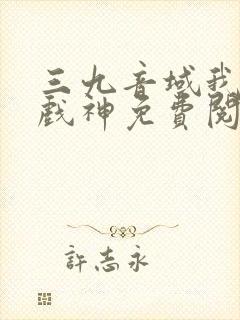 三九音域我
戲神免費閱
許志永